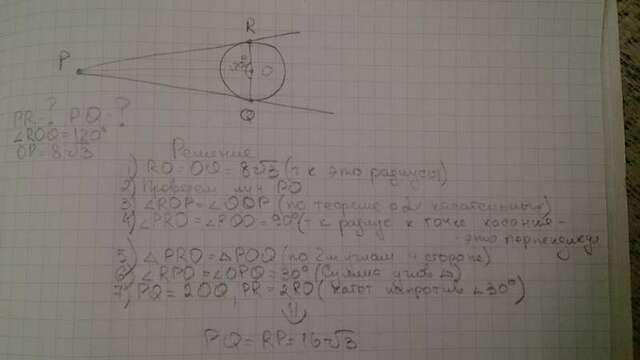 R
P
O
Q
PR-? PQ-?
∠ROQ=120°
OP=8√3
Решение
1) RO=OQ=8√3 (т к это радиусы)
2) Проведем луч PO
3) ∠ROP=∠QOP (по теореме о 2х касательных)
4) ∠PRO=∠PQO=90° (т к радиус к точке касания-
это перпендикуляр
5) △PRO=△POQ (по 2м углам и стороне)
6) ∠RPO=∠OPQ=30° (Сумма углов △)
7) PQ=2OQ, PR=2RO (Катет напротив ∠30°)
⇓
PQ=RP=16√3